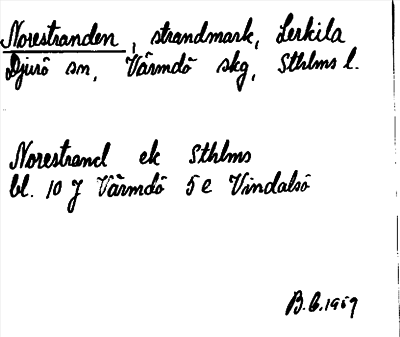 Norestranden, strandmark, Lerkila
Djurö sn, Värmdö skg, Sthlms l.
Norestrand ek Sthlms
bl. 10 J Värmdö 5 e Vindalsö
B.G. 1969